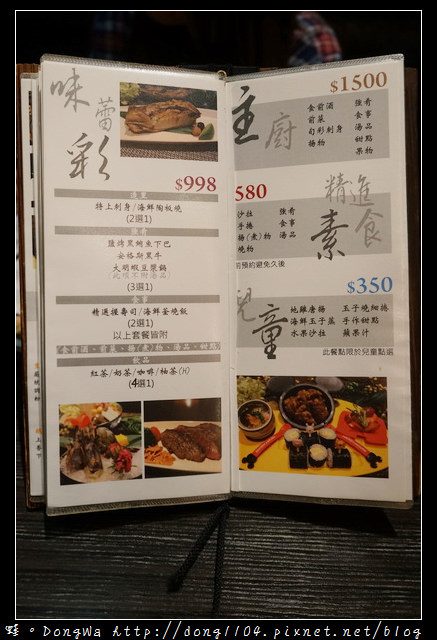 味蕾彩
$998
特上刺身/海鮮陶板燒
(2選1)
強肴
鹽烤黑鮪魚下巴
安格斯黑牛
大明蝦豆漿鍋
(3選1)
食事
精選握壽司/海鮮釜燒飯
(2選1)
以上套餐皆附
食前酒、前菜、揚(煮)物、湯品、甜點
飲品
紅茶/奶茶/咖啡/柚茶(H)
(4選1)
主廚
$1500
食前酒 強肴
前菜 食事
旬彩刺身 湯品
揚物 甜點
果物
580
精進素食
沙拉 強肴
手捲 食事
揚(煮)物 湯品
燒物
前預約避免久後
兒童
$350
地雞唐揚 玉子燒細捲
海鮮玉子蒸 手作甜點
水果沙拉 蘋果汁
此餐點限於兒童點選
蛙。DongWa http://dong1104.pixnet.net/blog